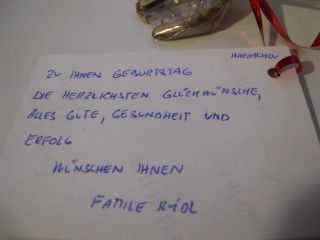 ZU IHNEN GEBURTSTAG
DIE HERZLICHSTEN GLÜCKWÜNSCHE,
ALLES GUTE, GESUNDHEIT UND
ERFOLG
WÜNSCHEN IHNEN
FAMILE